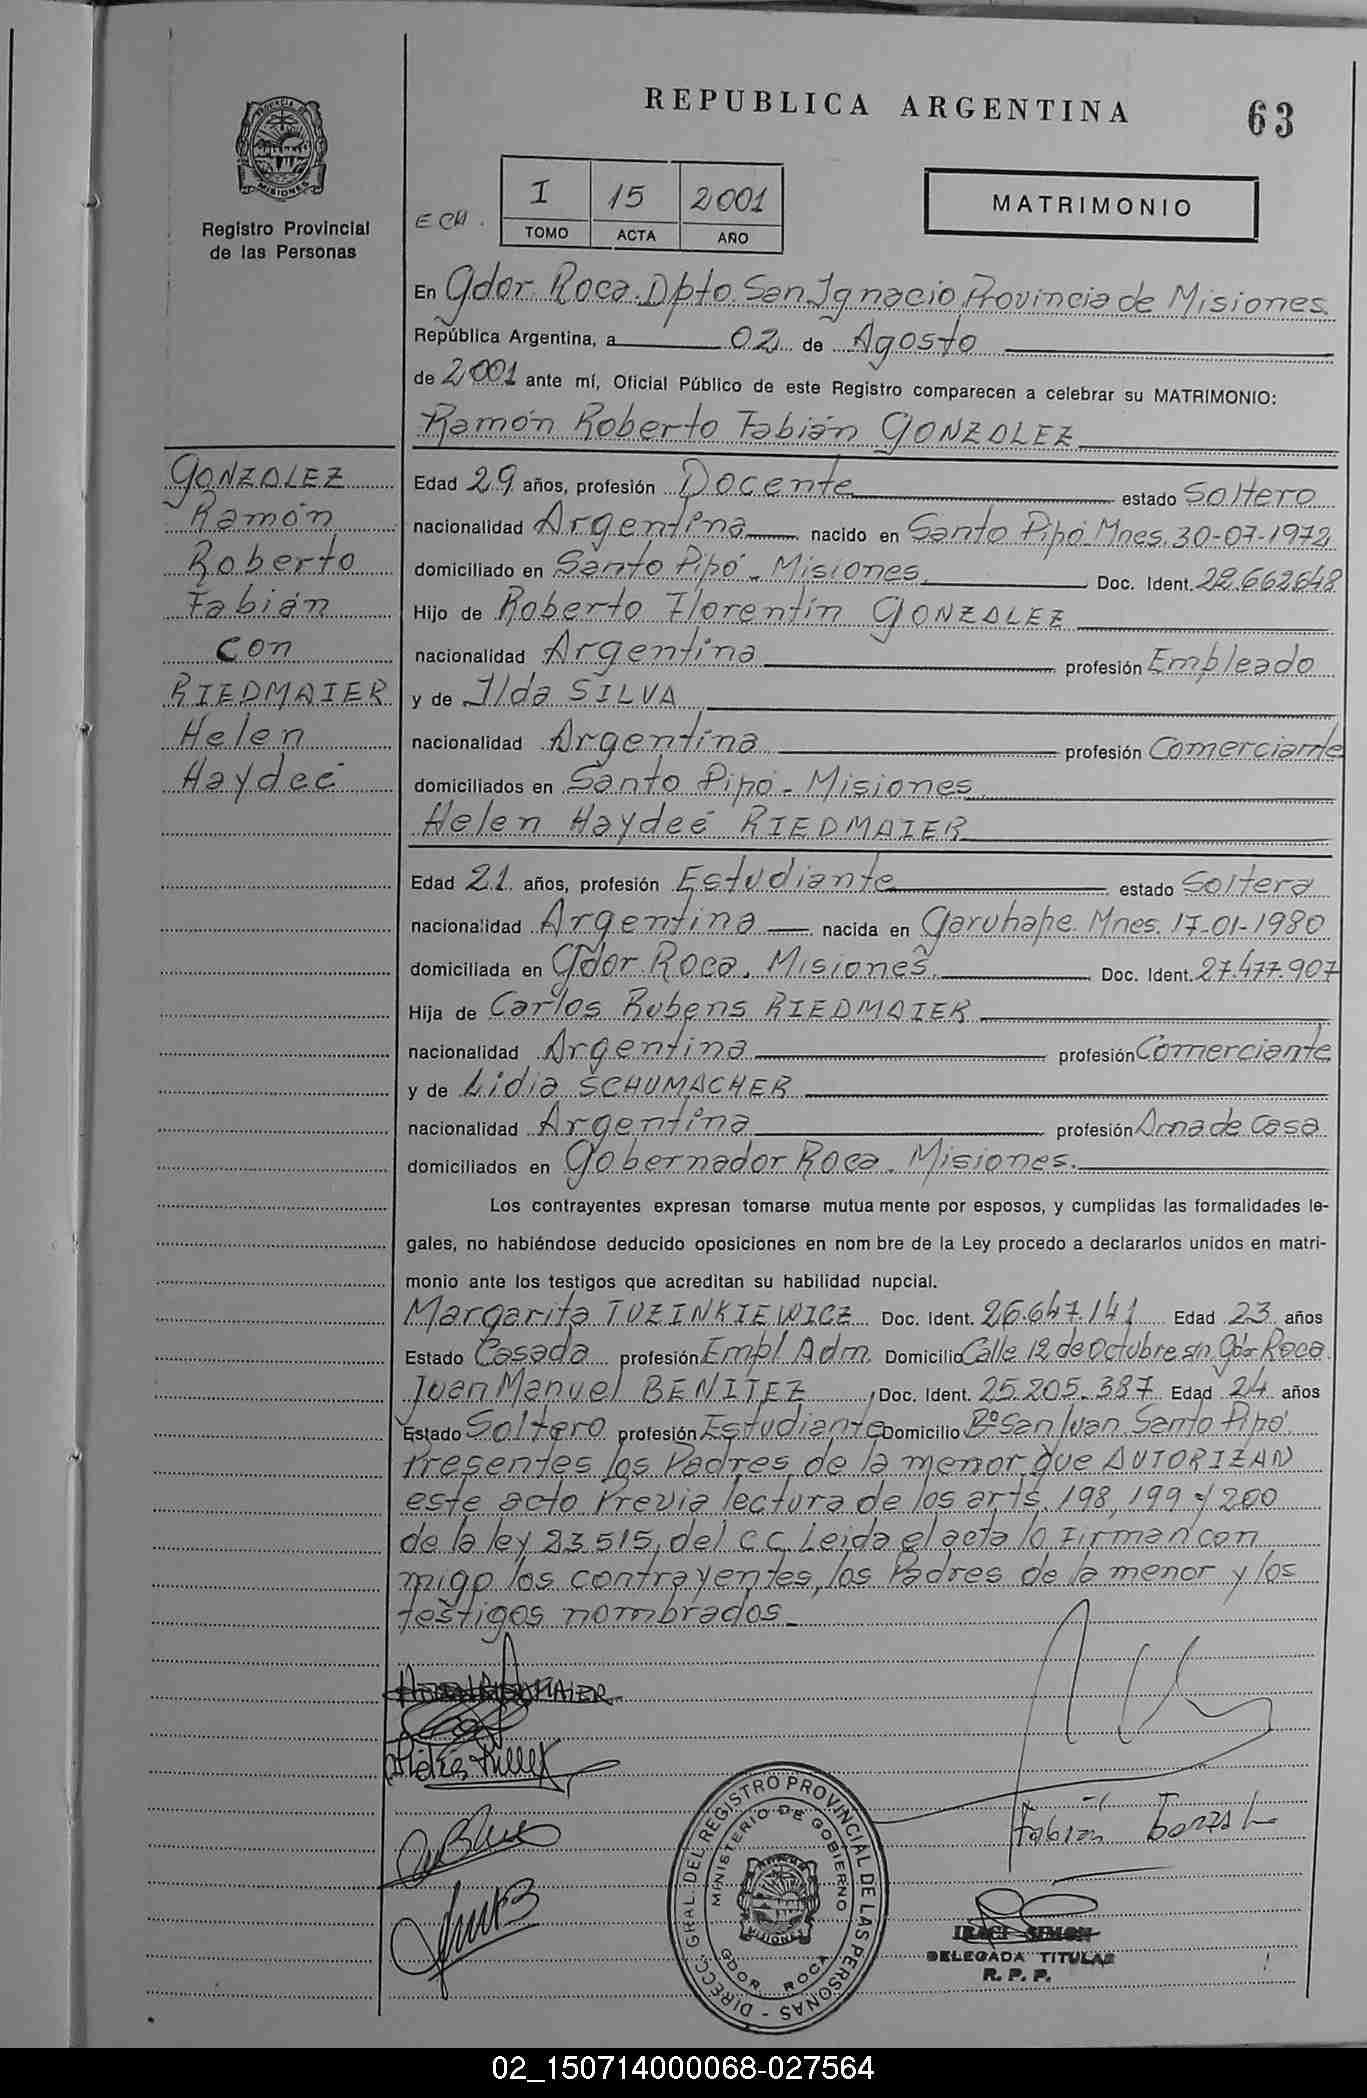 REPUBLICA ARGENTINA
63
PROVINCIA DE
MISIONES
Registro Provincial
de las Personas
ECH.
I 15 2001
TOMO ACTA AÑO
MATRIMONIO
En Gdor. Roca. Dpto. San Ignacio, Provincia de Misiones.
República Argentina, a 02 de Agosto
de 2001 ante mí, Oficial Público de este Registro comparecen a celebrar su MATRIMONIO:
Ramón Roberto Fabián GONZALEZ
GONZALEZ
Ramón
Roberto
Fabián
con
RIEDMAIER
Helen
Haydeé
Edad 29 años, profesión Docente estado Soltero
nacionalidad Argentina nacido en Santo Pipó. Mnes. 30-07-1972
domiciliado en Santo Pipó - Misiones. Doc. Ident. 22.662.648
Hijo de Roberto Florentín GONZALEZ
nacionalidad Argentina profesión Embleado
y de Ilda SILVA
nacionalidad Argentina profesión Comerciante
domiciliados en Santo Pipó - Misiones
Helen Haydeé RIEDMAIER
Edad 21 años, profesión Estudiante estado Soltera
nacionalidad Argentina nacida en Garuhape. Mnes. 17-01-1980
domiciliada en Gdor. Roca. Misiones. Doc. Ident. 27.477.907
Hija de Carlos Rubens RIEDMAIER
nacionalidad Argentina profesión Comerciante
y de Lidia SCHUMACHER
nacionalidad Argentina profesión Ama de Casa
domiciliados en Gobernador Roca. Misiones.
Los contrayentes expresan tomarse mutua mente por esposos, y cumplidas las formalidades le-
gales, no habiéndose deducido oposiciones en nom bre de la Ley procedo a declararlos unidos en matri-
monio ante los testigos que acreditan su habilidad nupcial.
Margarita TUZINKIEWICZ Doc. Ident. 26.647.141 Edad 23 años
Estado Casada profesión Empl Adm. Domicilio Calle 12 de Octubre s/n Gdor Roca.
Juan Manuel BENITEZ, Doc. Ident. 25.205.387 Edad 24 años
Estado Soltero profesión Estudiante Domicilio Bº San Juan. Santo Pipó.
Presentes los Padres de la menor que AUTORIZAN
este acto. Previa lectura de los arts. 198, 199 y 200
de la ley 23.515, del C.C. Leida el acta lo Firman con
migo los contrayentes, los Padres de la menor y los
testigos nombrados.
Fabián Gonzal
DIRECC. GRAL. DEL REGISTRO PROVINCIAL DE LAS PERSONAS -
MINISTERIO DE GOBIERNO
MISIONES
GDOR. ROCA
IRACI SIMON
DELEGADA TITULAR
R. P. P.
02_150714000068-027564